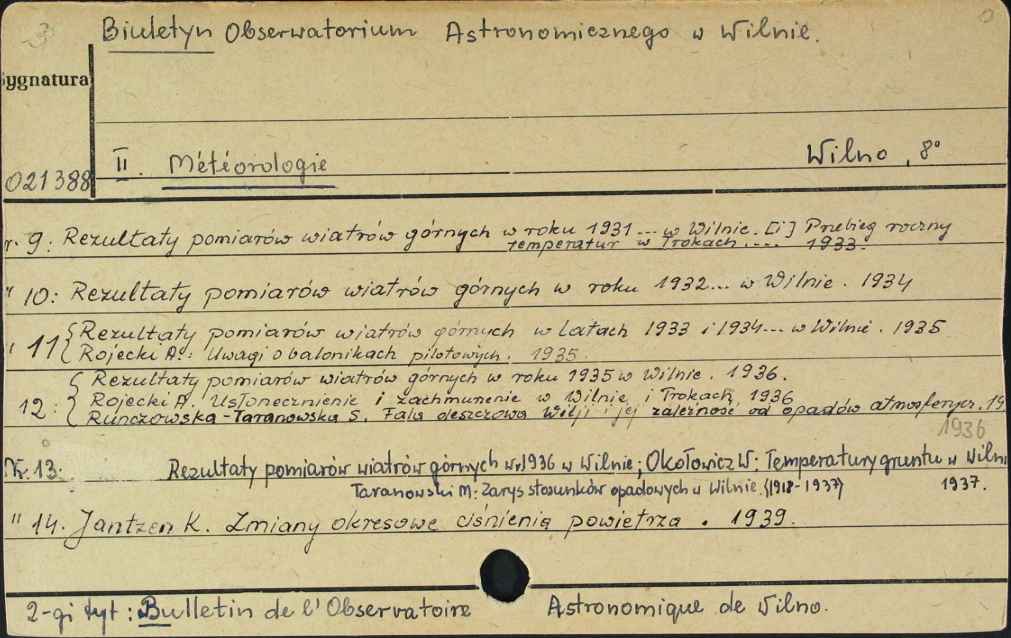 Biuletyn Obserwatorium Astronomicznego w Wilnie.
Sygnatura
II. Météorologie Wilno, 8°
021388
r. 9: Rezultaty pomiarów wiatrów górnych w roku 1931 ... w Wilnie. [i] Przebieg roczny
temperatur w Trokach .... 1933.
" 10: Rezultaty pomiarów wiatrów górnych w roku 1932 ... w Wilnie. 1934
" 11 { Rezultaty pomiarów wiatrów górnych w latach 1933 i 1934 ... w Wilnie. 1935
Rojecki A.: Uwagi o balonikach pilotowych. 1935.
12: { Rezultaty pomiarów wiatrów górnych w roku 1935 w Wilnie. 1936.
Rojecki A. Usłonecznienie i zachmurzenie w Wilnie i Trokach 1936
Runczowska-Taranowska S. Fala deszczowa Wilji i jej zależność od opadów atmosferycz. 19
1936
Nr. 13: Rezultaty pomiarów wiatrów górnych w r. 1936 w Wilnie; Okołowicz W: Temperatury gruntu w Wilni
Taranowski M: Zarys stosunków opadowych w Wilnie. (1918-1937) 1937.
" 14. Jantzen K. Zmiany okresowe ciśnienia powietrza. 1939.
2-gi tyt: Bulletin de l'Observatoire Astronomique de Wilno.